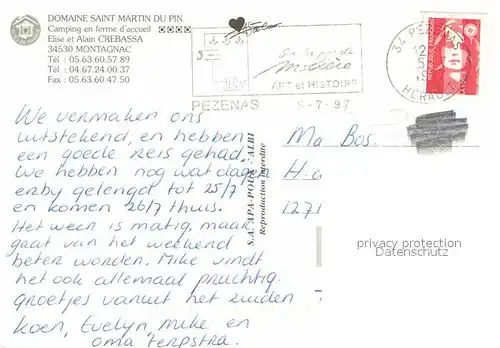 DOMAINE SAINT MARTIN DU PIN
Camping en ferme d'accueil
Elise et Alain CREBASSA
34530 MONTAGNAC
Tél : 05.63.60.57.89
Tél : 04.67.24.00.37
Fax : 05.63.60.47.50
Sur les pas de
Molière
ART et HISTOIRE
PEZENAS 5-7-97
34 PEZENAS
HERAULT
We vermaken ons
uitstekend, en hebben
een goede reis gehad.
We hebben nog wat dagen
erby gelengd tot 25/7
en komen 26/7 thuis.
Het weer is matig, maar
gaat van het weekend
beter worden. Mike vindt
het ook allemaal prachtig.
groetjes vanuit het zuiden
Koen, Evelyn, Mike en
oma Terpstra.
S.A. APA-POUX - ALBI
Reproduction interdite
Ma Bos
1271
privacy protection
Datenschutz